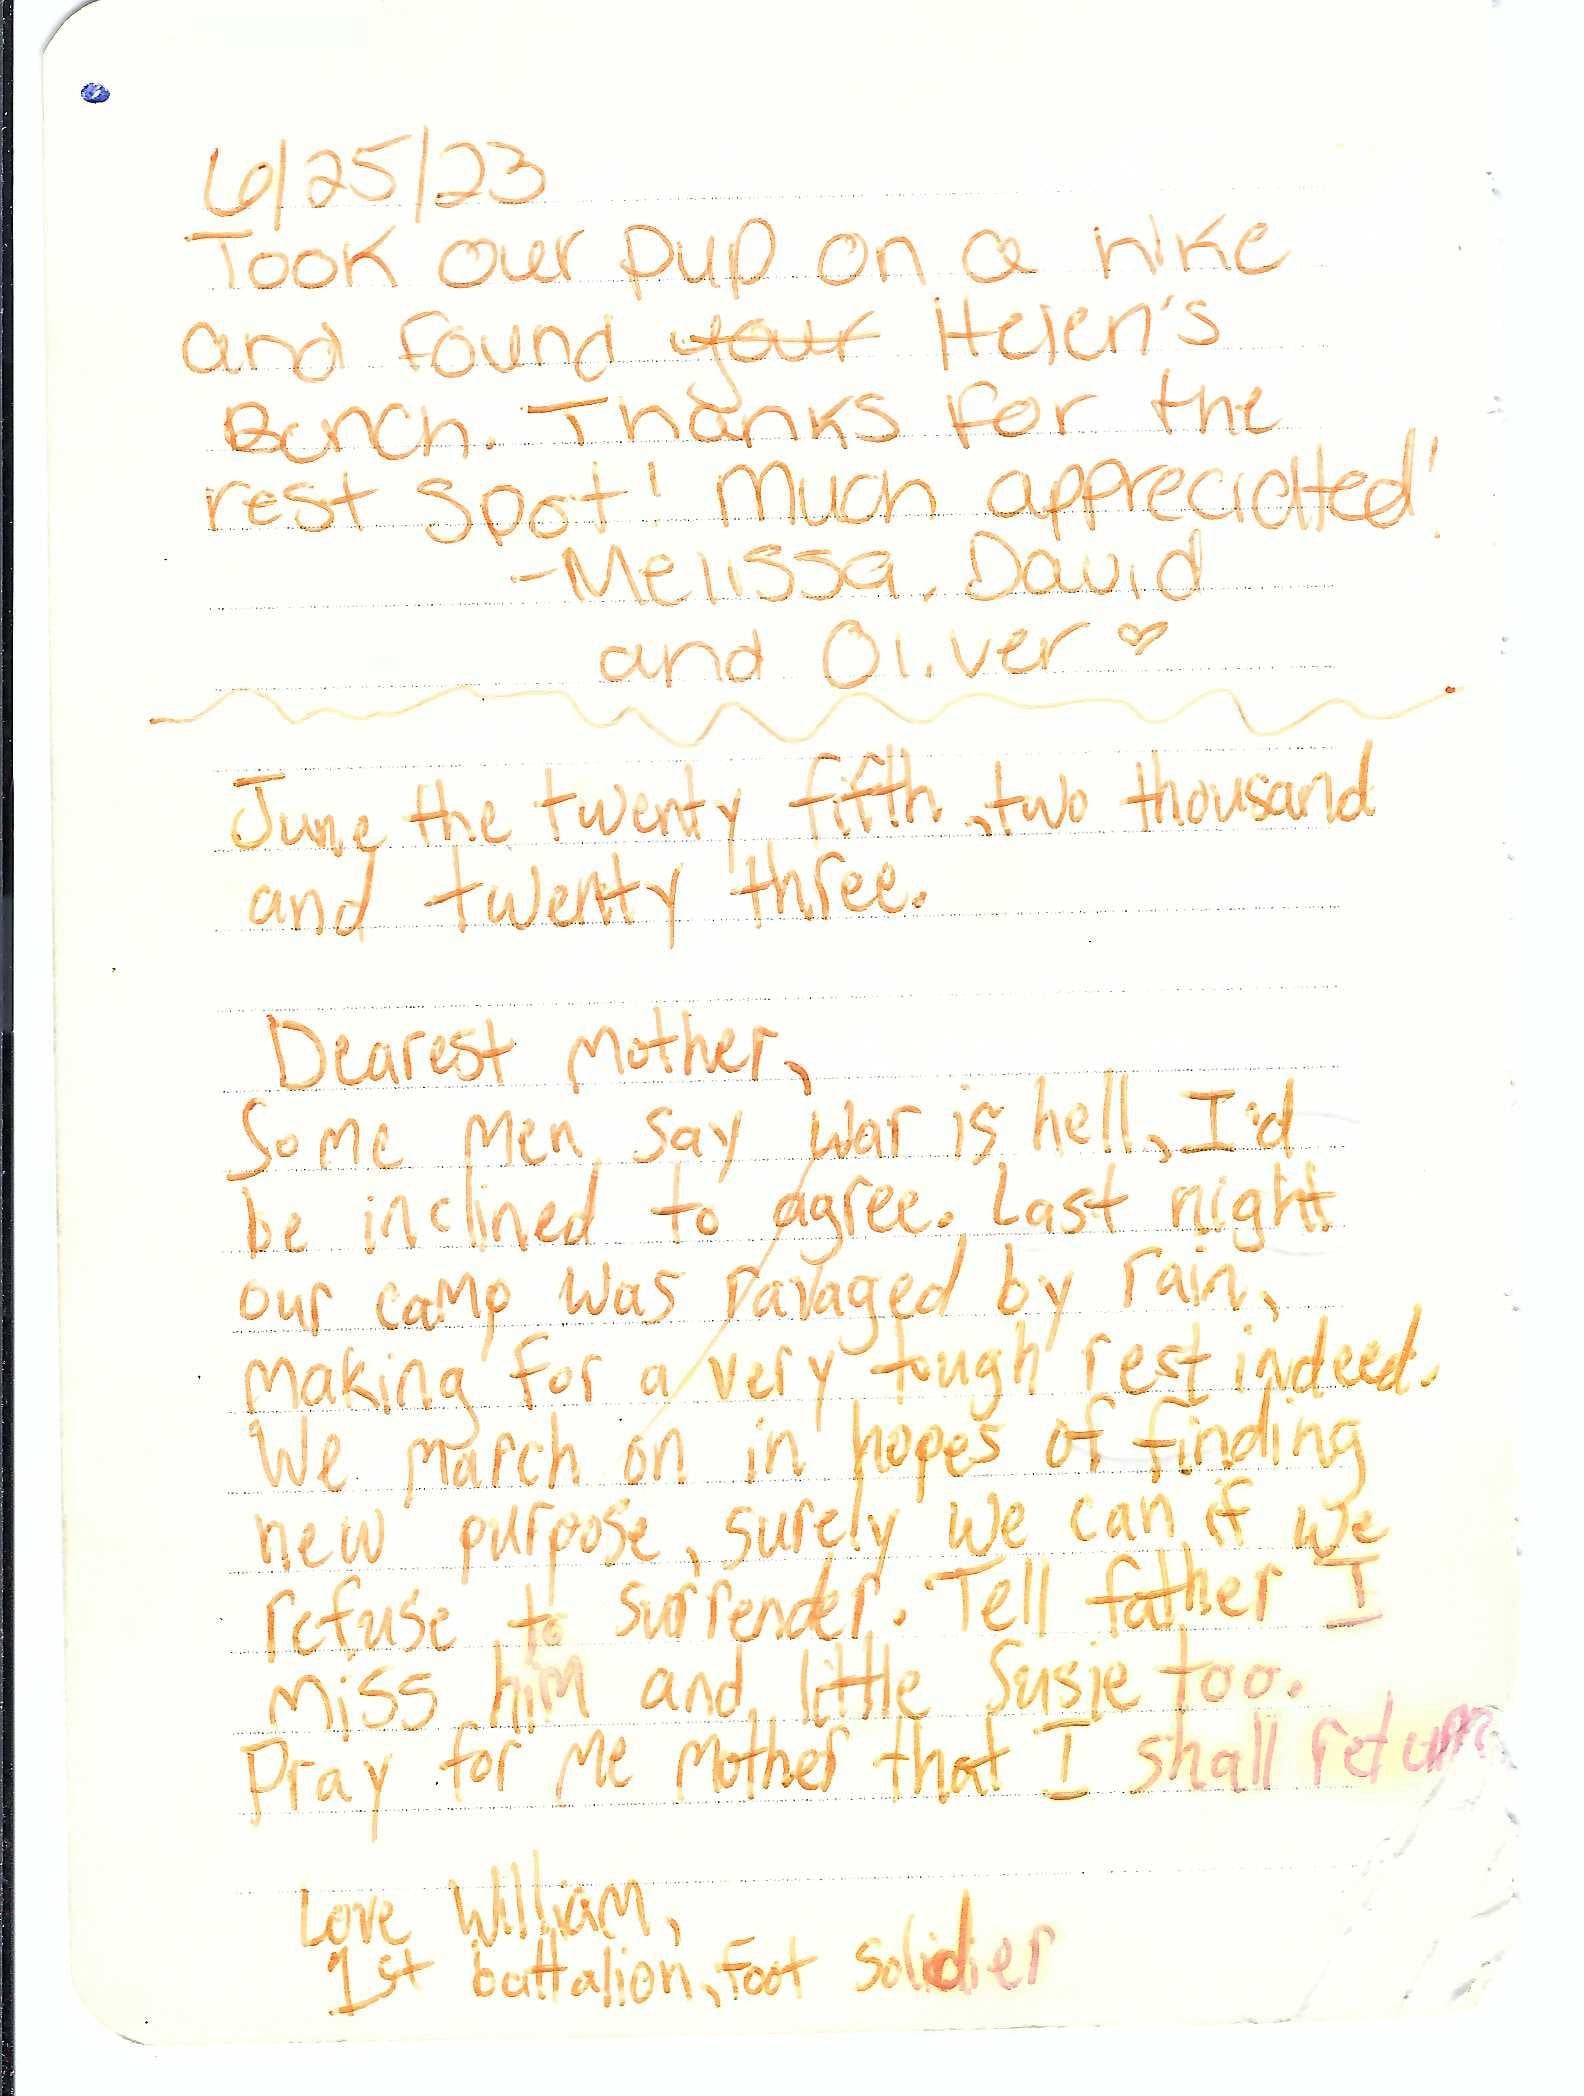 6/25/23
Took our pup on a hike
and found your Helen's
Bench. Thanks for the
rest spot! Much appreciated!
-Melissa, David
and Oliver ♡
June the twenty fifth, two thousand
and twenty three.
Dearest Mother,
Some men say war is hell, I'd
be inclined to agree. Last night
our camp was ravaged by rain,
making for a very tough rest indeed.
We march on in hopes of finding
new purpose, surely we can if we
refuse to surrender. Tell father I
miss him and little Susie too.
Pray for me mother that I shall return
Love William,
1st battalion, foot solidier